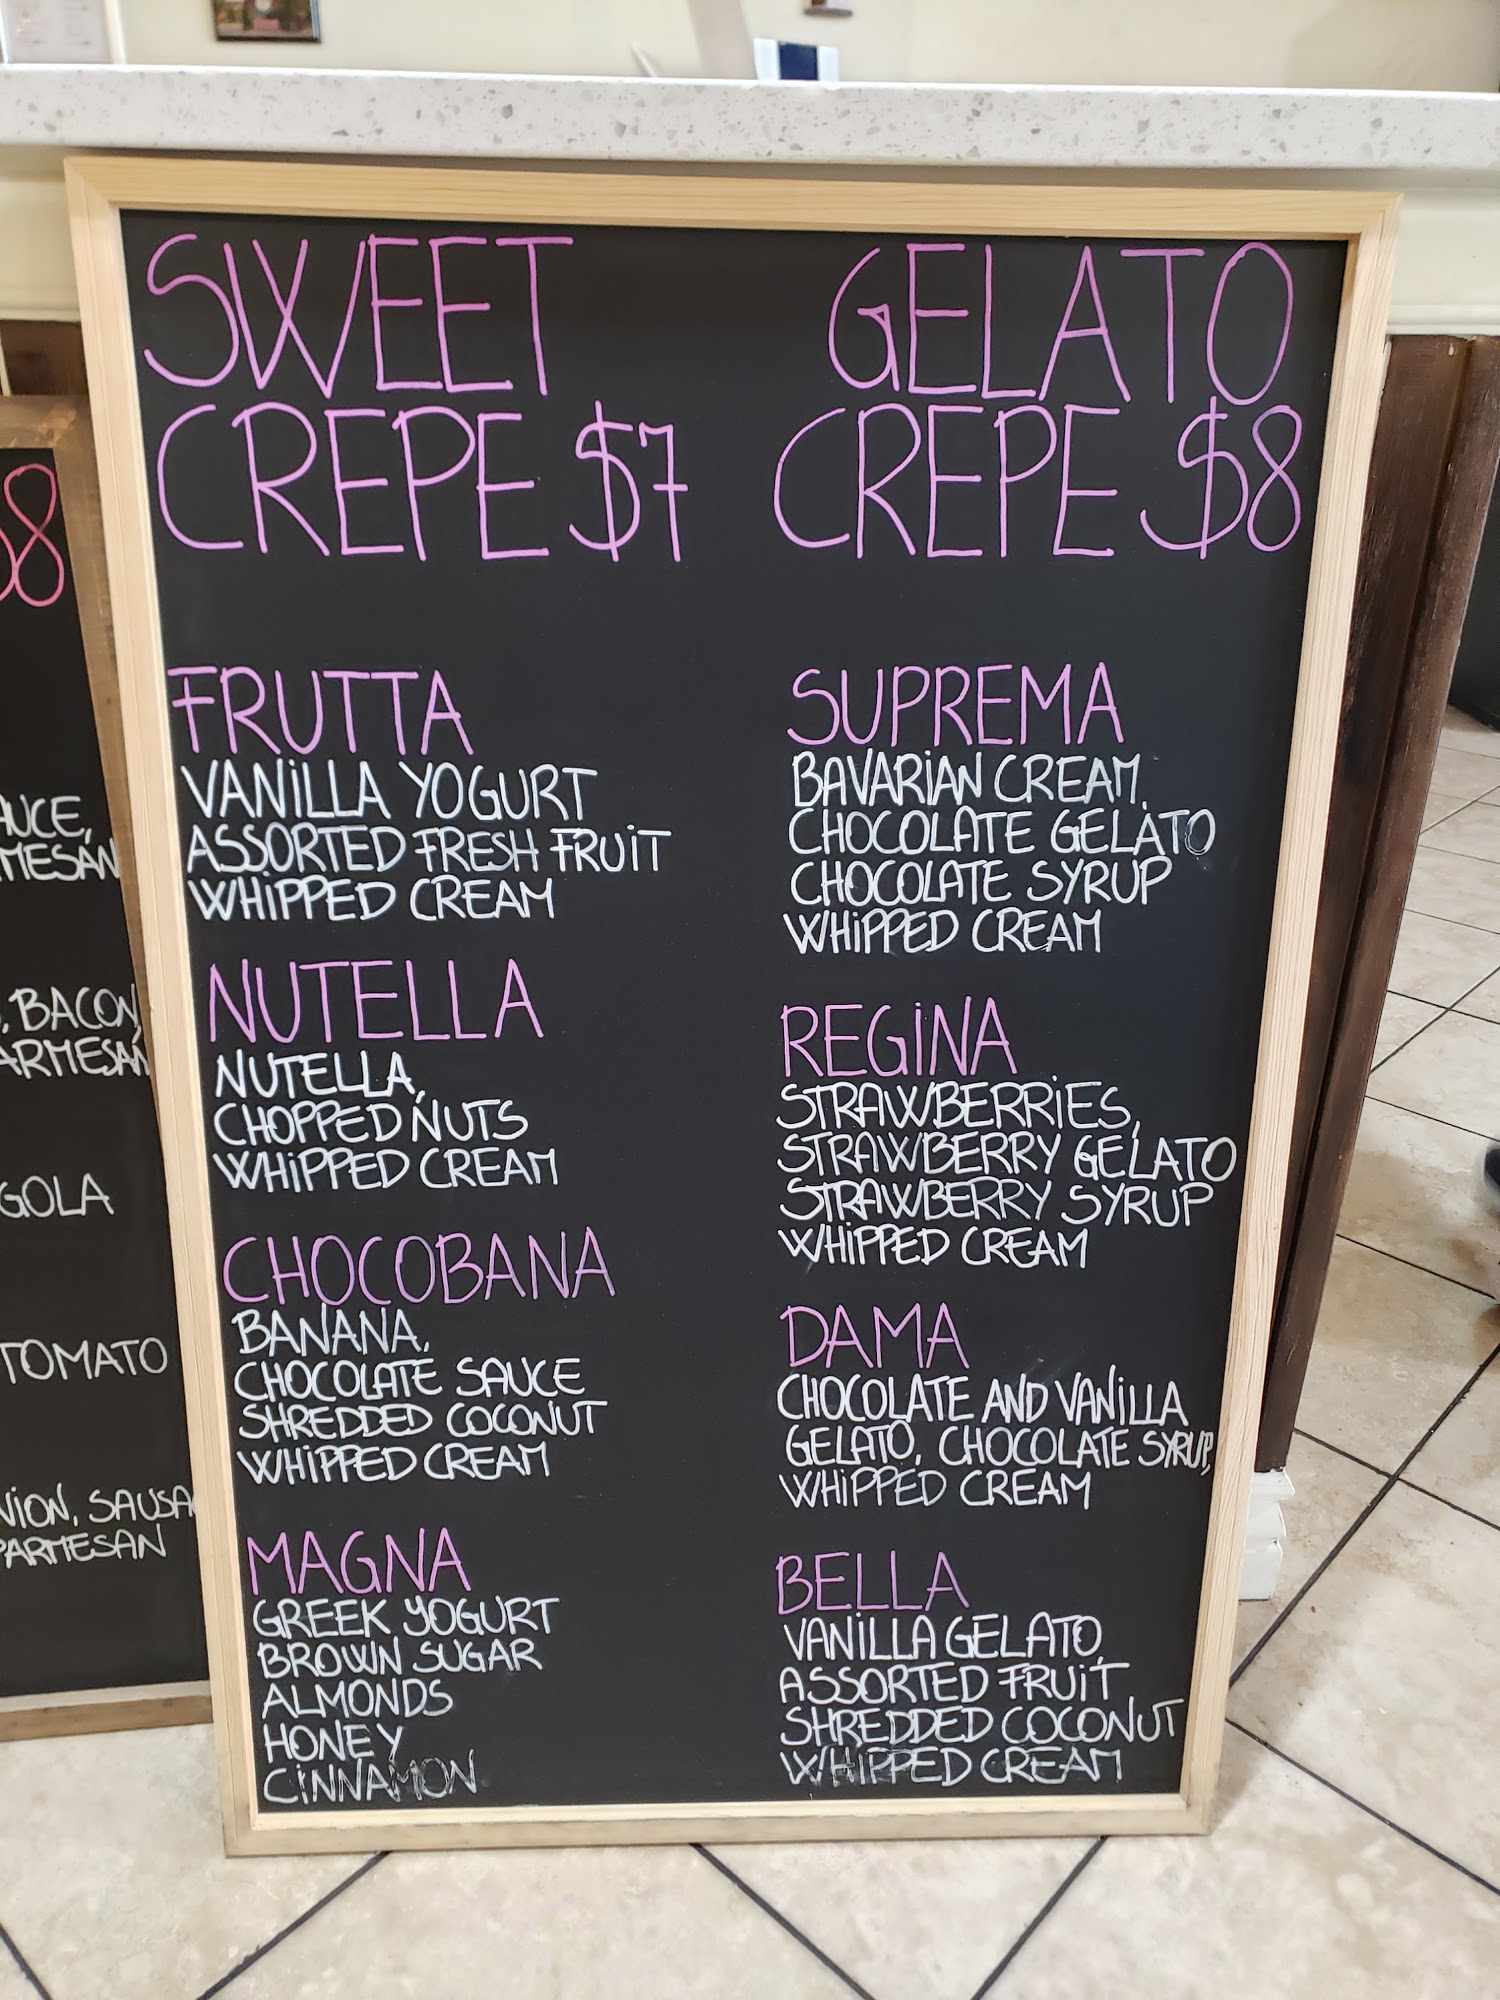 SWEET
CREPE $7
FRUTTA
VANiLLA YOGURT
ASSORTED FRESH FRUiT
WHiPPED CREAM
NUTELLA
NUTELLA,
CHOPPED NUTS
WHiPPED CREAM
CHOCOBANA
BANANA,
CHOCOLATE SAUCE
SHREDDED COCONUT
WHiPPED CREAM
MAGNA
GREEK YOGURT
BROWN SUGAR
ALMONDS
HONEY
CiNNAMON
GELATO
CREPE $8
SUPREMA
BAVARiAN CREAM,
CHOCOLATE GELATO
CHOCOLATE SYRUP
WHiPPED CREAM
REGiNA
STRAWBERRiES,
STRAWBERRY GELATO
STRAWBERRY SYRUP
WHiPPED CREAM
DAMA
CHOCOLATE AND VANiLLA
GELATO, CHOCOLATE SYRUP,
WHiPPED CREAM
BELLA
VANiLLA GELATO,
ASSORTED FRUiT
SHREDDED COCONUT
WHiPPED CREAM
8
BACON,
TOMATO
PARMESAN